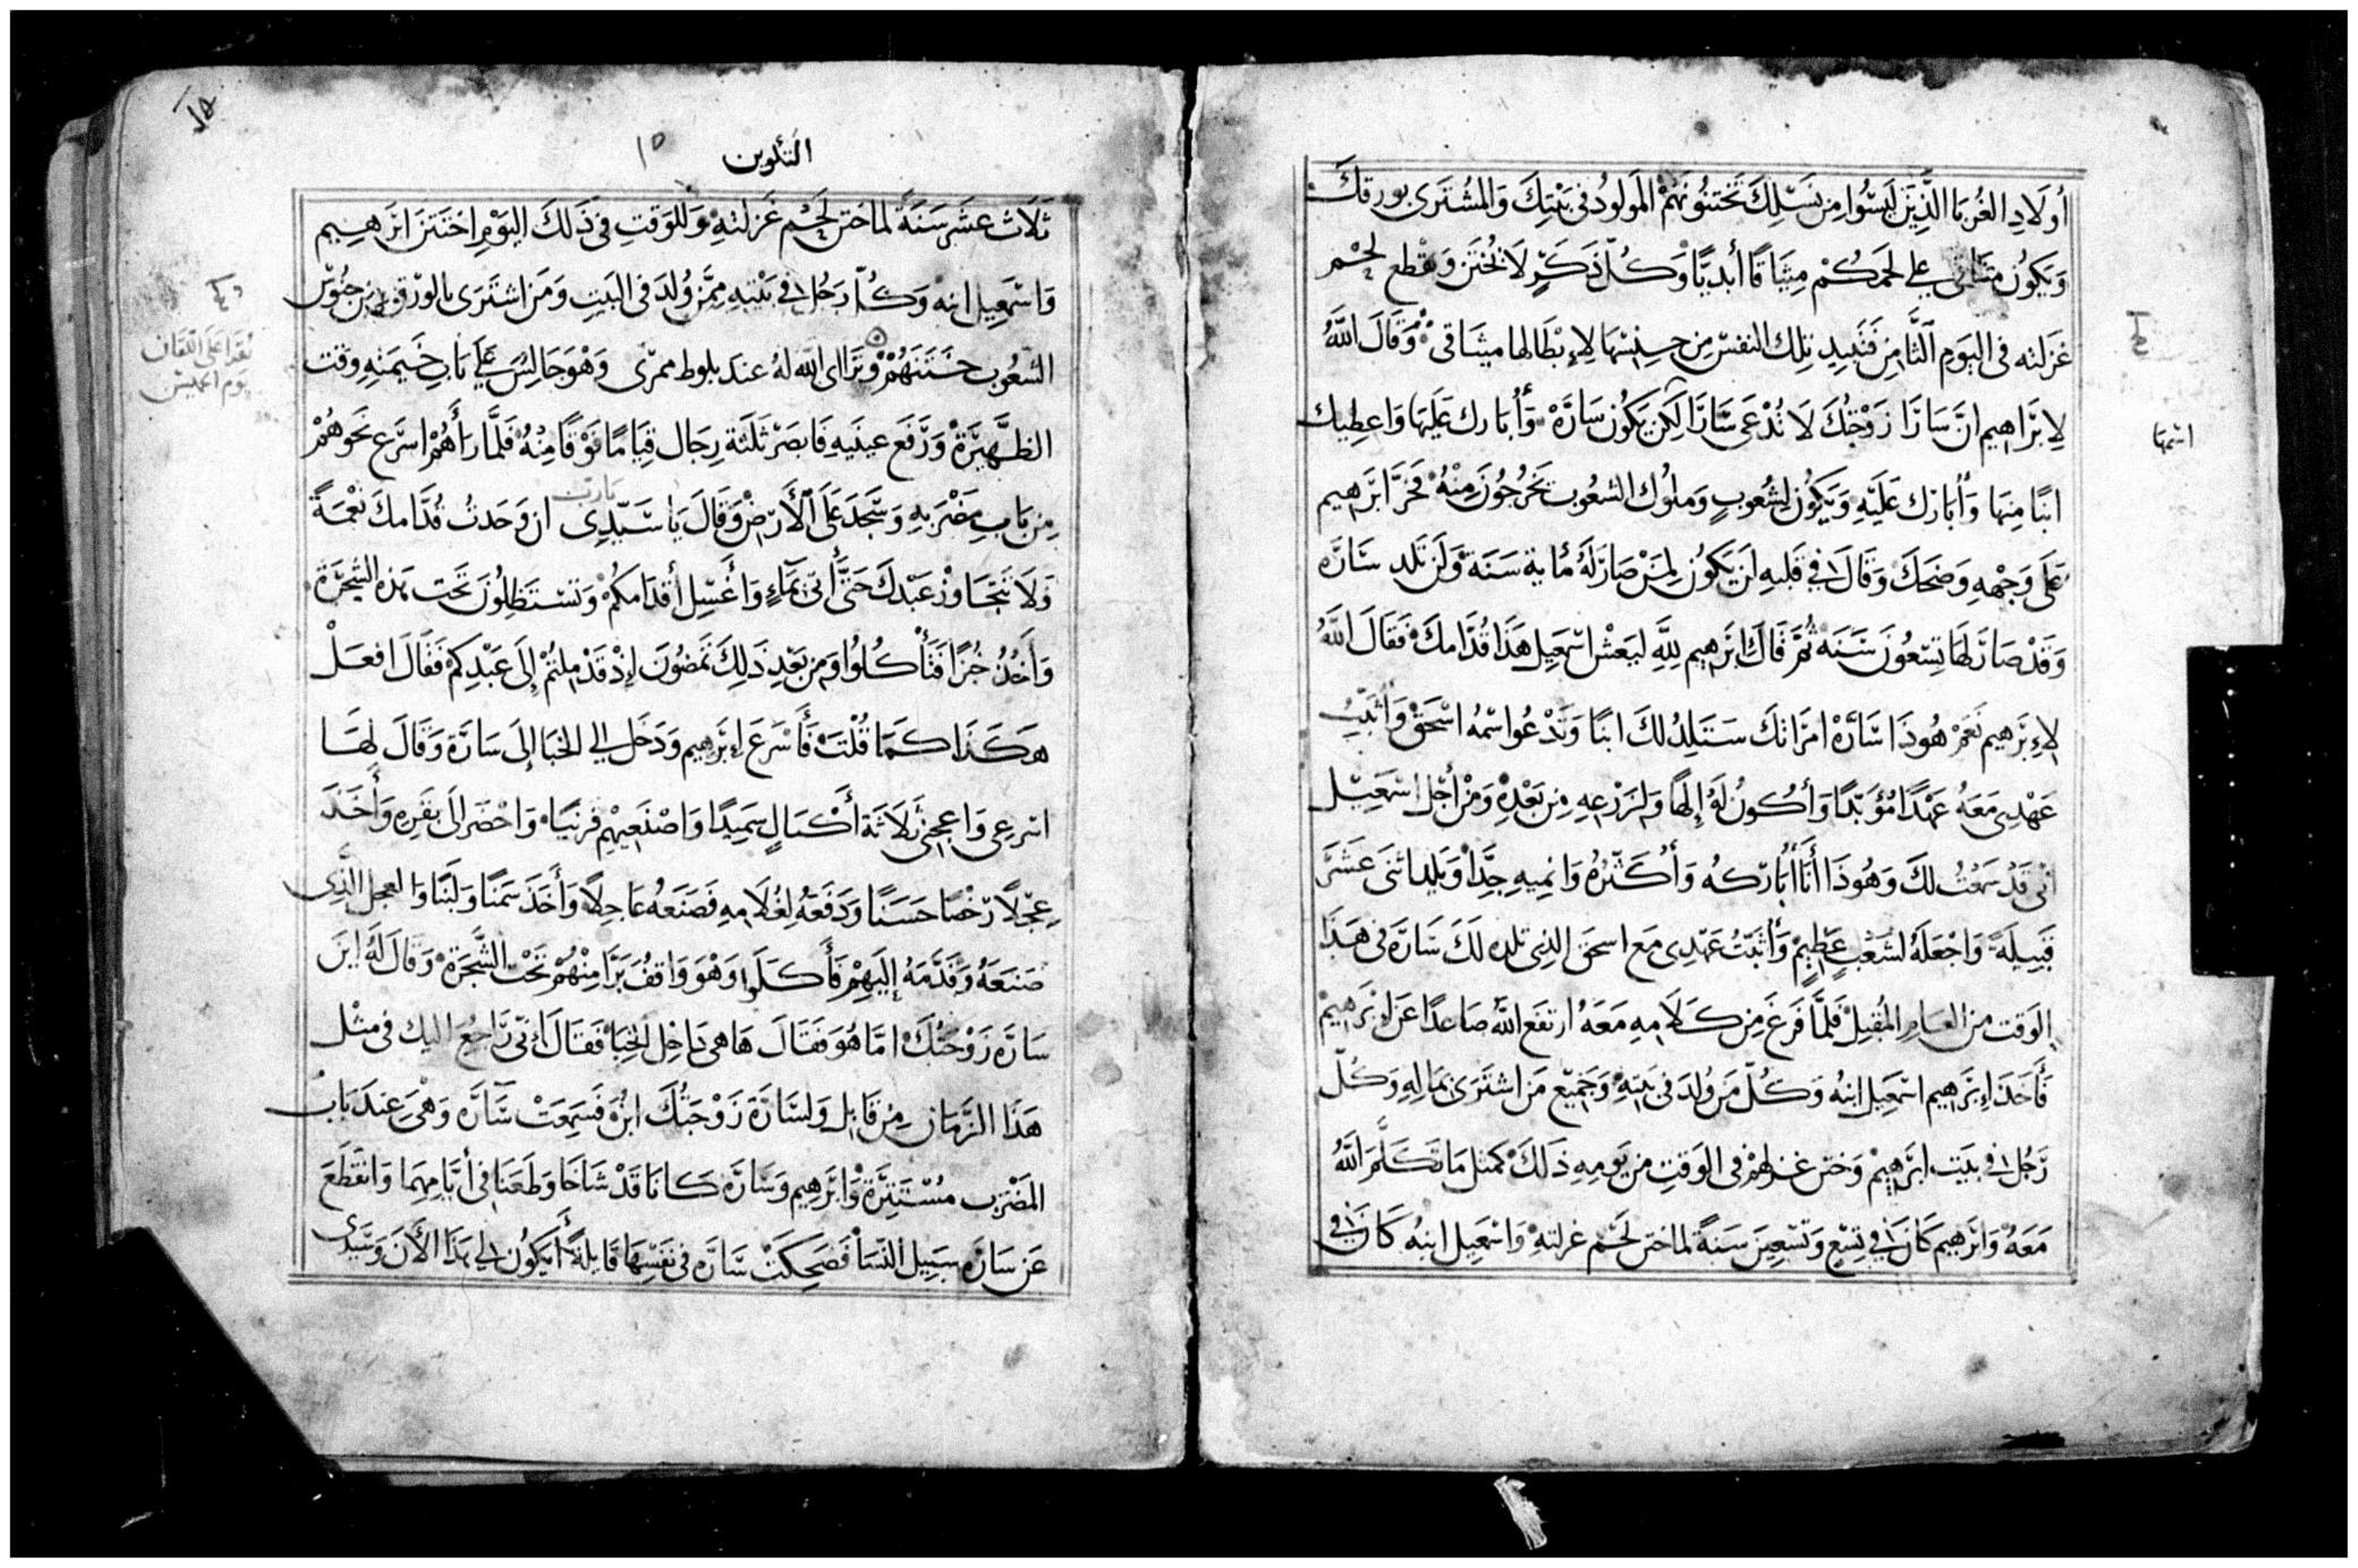 أولاد الغربا الذين ليسوا من نسلك تختنونهم المولود في بيتك والمشترى بورقك
ويكون ميثاقي على لحمكم ميثاقا أبديا وكل ذكر لا يختن ويقطع لحم
غزلته في اليوم الثامن فتبيد تلك النفس من جنسها لإبطالها ميثاقي وقال الله
لابراهيم ان سارا زوجتك لا تدعى سارا لكن يكون سارة وأبارك عليها واعطيك
اسمها
ابنا منها وأبارك عليه ويكون لشعوب وملوك الشعوب يخرجون منه فخر ابرهيم
على وجهه وضحك وقال في قلبه ان يكون لمن صار له مأية سنة ولن تلد سارة
وقد صار لها تسعون سنه ثم قال ابرهيم لله ليعش اسمعيل هذا قدامك فقال الله
لإبرهيم نعم هوذا سارة امراتك ستلد لك ابنا وتدعوا اسمه اسحق وأثبت
عهدي معه عهدا مؤبدا وأكون له إلها ولزرعه من بعده ومن أجل اسمعيل
اني قد سمعت لك وهوذا أنا أباركه وأكثره وانميه جدا ويلد اثنى عشر
قبيلة واجعله لشعب عظيم وأثبت عهدي مع اسحق الذي تلده لك سارة في هذا
الوقت من العام المقبل فلما فرغ من كلامه معه ارتفع الله صاعدا عن ابرهيم
فأخذ إبرهيم اسمعيل ابنه وكل من ولد في بيته وجميع من اشترى بماله وكل
رجل في بيت ابرهيم وختن غرلهم في الوقت من يومه ذلك كمثل ما تكلم الله
معه وابرهيم كان في تسع وتسعين سنة لما ختن لحم غرلته واسمعيل ابنه كان في
التكوين
١٥
ثلاث عشر سنة لما ختن لحم غرلته وللوقت في ذلك اليوم اختتن ابرهيم
واسمعيل ابنه وكل رجل في بيته ممن ولد في البيت ومن اشترى بالورق من جنوس
الشعوب ختنهم وتراأى الله له عند بلوط ممرى وهو جالس على باب خيمته وقت
الظهيرة ورفع عينيه فابصر ثلثة رجال قياما فوقا منه فلما رأهم اسرع نحوهم
من باب مضربه وسجد على الأرض وقال يا سيدي ان وجدت قدامك نعمة
يارب
ولا تتجاوز عبدك حتى أتي بماء وأغسل أقدامكم وتستظلون تحت هذه الشجرة
وأخذ خبزا فتأكلوا ومن بعد ذلك تمضون إذ قد ملتم إلى عبدكم فقال افعل
هكذا كما قلت فأسرع إبرهيم ودخل الي الخبا إلى سارة وقال لها
اسرعى واعجني ثلاثة أكيال سميدا واصنعيهم فرنيا واحضر الى بقره وأخذ
عجلا رخصا حسنا ودفعه لغلامه فصنعه عاجلا وأخذ سمنا ولبنا والعجل الذي
صنعه وقدمه إليهم فأكلوا وهو واقف برا منهم تحت الشجرة وقال له اين
سارة زوجتك اما هو فقال ها هي داخل الخبا فقال إني راجع اليك في مثل
هذا الزمان من قابل ولسارة زوجتك ابن فسمعت سارة وهي عند باب
المضرب مستترة وابرهيم وسارة كانا قد شاخا وطعنا في أيامهما وانقطع
عن سارة سبيل النسا فضحكت سارة في نفسها قايلة أيكون لي هذا الأن وسيدي